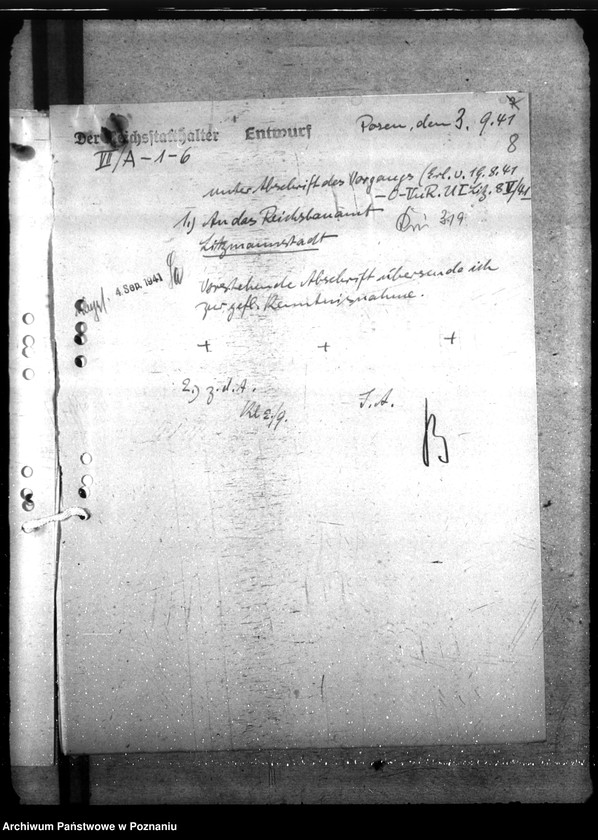 Der Reichsstatthalter Entwurf Posen, den 3. 9. 41
VI/A-1-6
8
unter Abschrift des Vorgangs (Erl. v. 19.8.41
1.) An das Reichsbauamt
Litzmannstadt
4. Sep. 1941
Vorstehende Abschrift übersende ich
zur gefl. Kenntnisnahme.
+ + +
2.) z. d. A.
I. A.
B
Archiwum Państwowe w Poznaniu